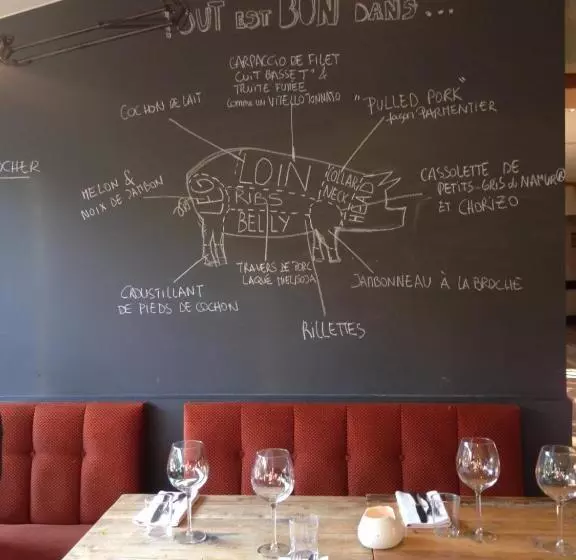 TOUT EST BON DANS...
CARPACCIO DE FILET
CUIT BASSE T° &
TRUITE FUMEE
COMME UN VITELLO TONNATO
COCHON DE LAIT
"PULLED PORK"
façon PARMENTIER
OCHER
MELON &
NOIX DE JAMBON
LOIN
RIBS
BELLY
COLLAR
NECK
HEAD
CASSOLETTE DE
PETITS-GRIS di NAMUR®
ET CHORIZO
CROUSTILLANT
DE PIEDS DE COCHON
TRAVERS DE PORC
LAQUÉ MIEL/SOJA
JAMBONNEAU À LA BROCHE
RILLETTES